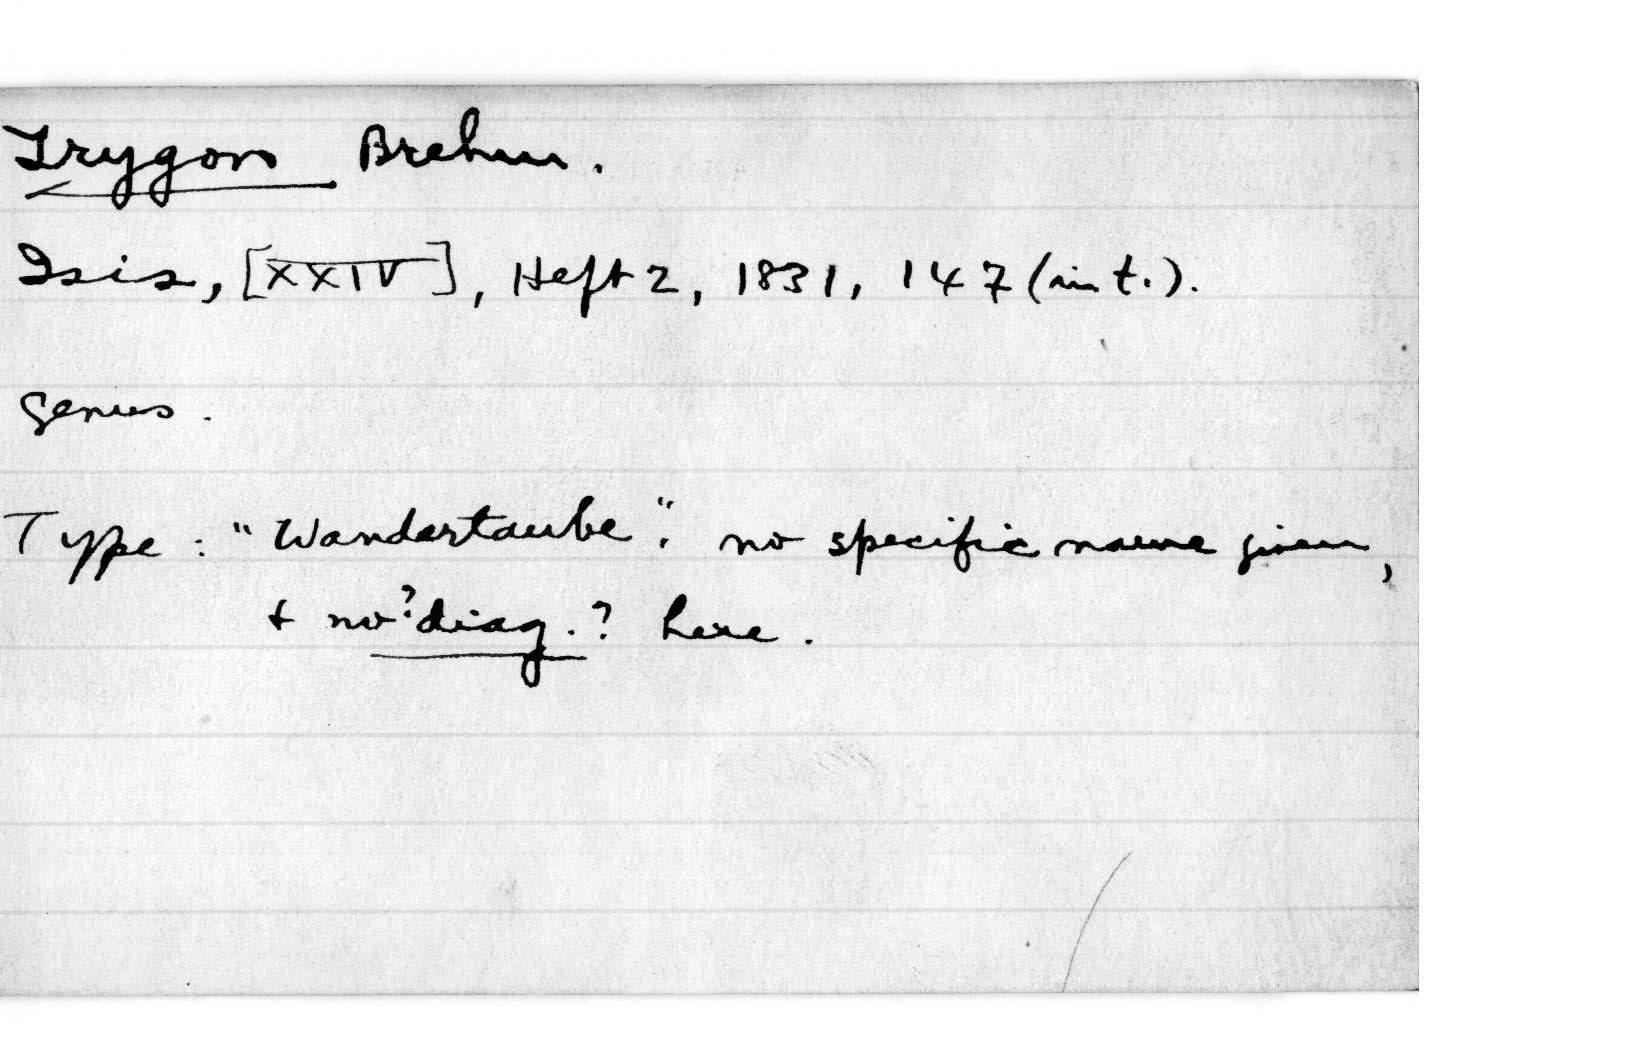 Trygon Brehm.
Isis, [XXIV], Heft 2, 1831, 147 (in t.).
Genus.
Type : "Wandertaube"; no specific name given,
& no ? diag. ? here.